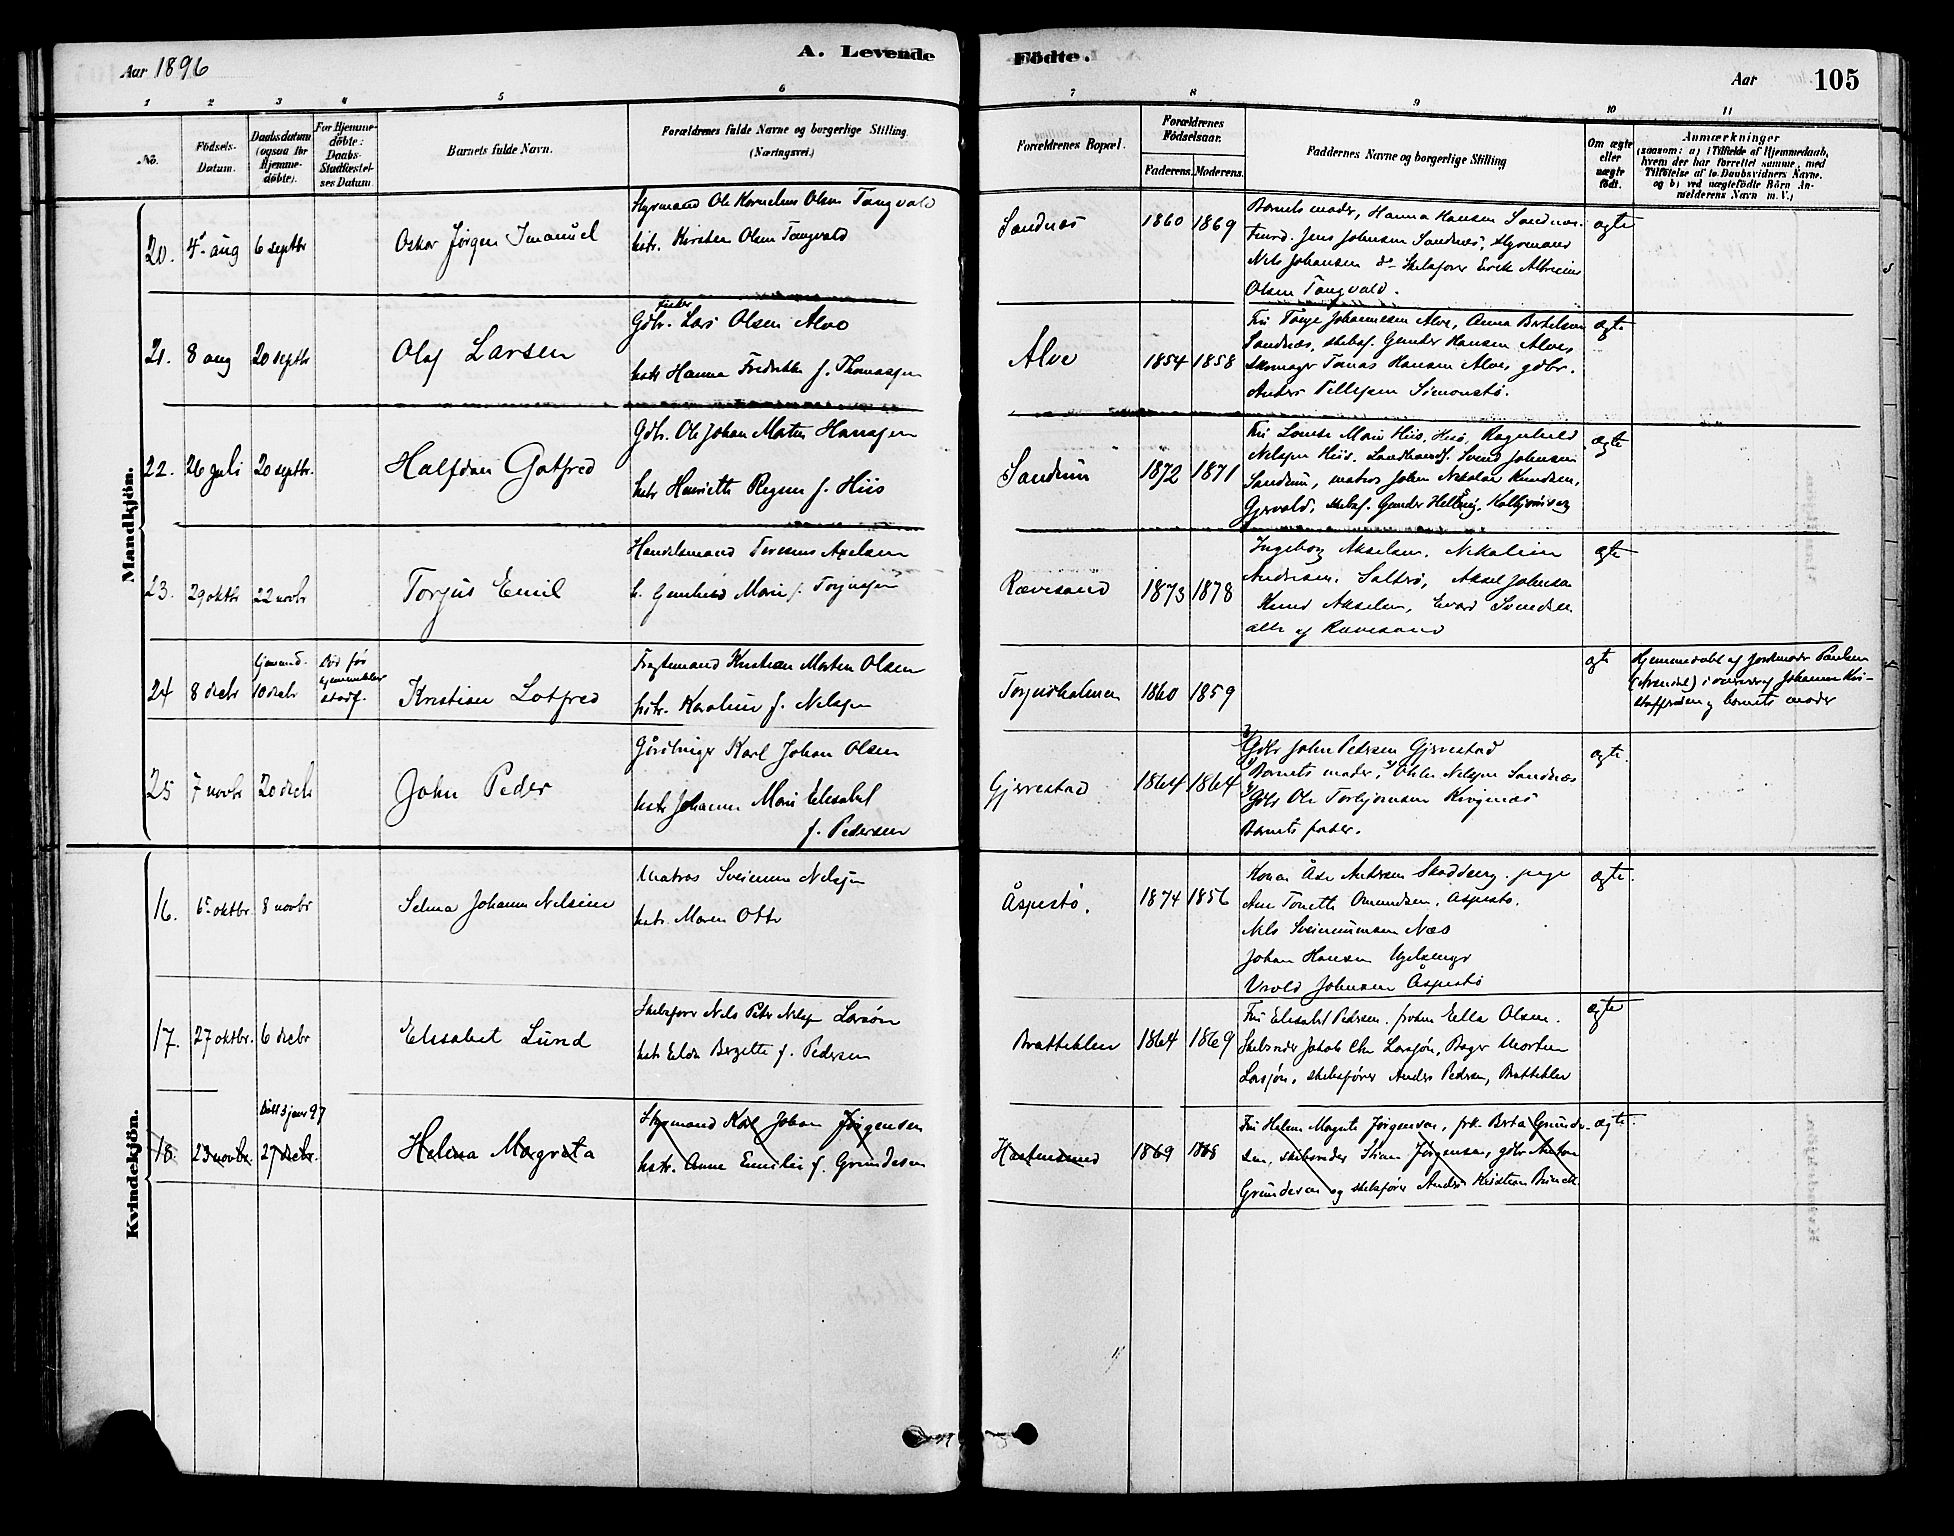 Aar 1896
A. Levende
Födte.
Aar
105
1
2
3
4
5
6
7
8
9
10
11
No.
Födsels-
Datum.
Daabsdatum
(ogsaa for
Hjemme-
döbte).
For Hjemme-
döbte:
Daabs-
Stadfæstel-
ses Datum
Barnets fulde Navn.
Forældrenes fulde Navne og borgerlige Stilling
(Næringsvei.)
Forældrenes Bopæl.
Forældrenes
Födselsaar.
Faderens.
Moderens.
Faddernes Navne og borgerlige Stilling
Om ægte
eller
uægte
födt.
Anmærkninger
(saasom: a) i Tilfælde af Hjemmedaab,
hvem der har forrettet samme, med
Tilföielse af to Daabsvidners Navne.
og b) ved uægtefödte Börn An-
melderens Navn m. V.)
Mandkjön.
20.
4. aug
6 septbr
Oskar Jørgen Imanuel
Styrmand Ole Kornelius Olsen Tangvald
hstr. Kirsten Olsen Tangvald
Sandnæs
1860
1869
Barnets moder, Hanna Hansen Sandnæs.
Jens Johnsen Sandnæs, styrmand
Nils Johansen do skibsfører
Olsen Tangvald.
ægte
21.
8 aug
20 septbr
Olaf Larsen
fisker
Gdbr. Lars Olsen Alve
hstr Hanna Fredrikke f. Thomassen
Alve
1854
1858
Fru Tonje Johannesen Alve, Anna Bertelsen
Sandnæs, skibsf. Gunder Hansen Alve,
skomager Tomas Hansen Alve, gdbr.
Anders Tellefsen Simonstø.
ægte
22.
26 juli
20 septbr.
Halfdan Gotfred
Gdbr. Ole Johan Martin Hansen
hstr Henriette Regine f. Hiis
Sandum
1872
1871
Fru Lovise Marie Hiis, Hisø, Ragnhild
Nilsen Hiis. Landhandl. Svend Johnsen
Sandum, matros Johan Nikolai Knudsen,
Gjervold, skibsf. Gunder
ægte
23.
29 oktbr
22 novbr
Torjus Emil
Handelsmand Teresius Axelsen
h. Gunhild Marie f. Torjussen
Rævesand
1873
1878
Ingeborg Akselsen, Nikoline
Andersen, Salterø, Aksel Johnsen
Knud Akselsen, Evald Svendsen
alle af Rævesand
ægte
24
8 decbr
hjemmed.
10 decbr
Død før
stadf.
Kristian Lotfred
Fragtemand Kristian Morten Olsen
hstr. Karoline f. Nilsen
Torjusholmen
1860
1859
ægte
Hjemmedøbt af jordmoder Paulsen
(Arendal) i overvær af Johanne Kri-
stoffersen og barnets moder
25
7 novbr
20 decbr
John Peder
Gårdbruger Karl Johan Olsen
hstr Johanne Marie Elisabet
f. Pedersen
Gjervestad
1864
1864
Gdbr John Pedersen Gjervestad
Barnets moder, Nilsen Sandnæs
Gdbr Ole Torbjørnsen
Barnets fader.
ægte.
Kvindekjön.
16.
6. oktbr.
8 novbr
Selma Johanne Nilsine
Matros Sveinum Nilsen
hstr. Maren Otte
Åspestø.
1874
1856
Konen Åse Andersen pige
Ane Tonette Omundsen, Aspestø.
Nils Sveinumsen Næs
Johan Hansen
Johnsen Åspestø
ægte.
17.
27 oktbr.
6 decbr
Elisabet Lund
Skibsfører Nils Peter Nilsen Larsøn
hstr Elda Bergette f. Pedersen
Bratteklev
1864
1869
Fru Elisabet Pedersen, frøken Ella Olsen.
Skibsreder Jakob Chr Larsøn, Bager Morten
Larsøn, skibsfører Anders Pedersen, Bratteklev
ægte
18.
23 novbr.
Døbt 3 janr 97
27 decbr.
Helena Margrete
Styrmand Karl Johan Jørgensen
hstr. Anne Emilie f. Grundesen
Hastensund
1869
1868
Fru Helene Margrete Jørgensen, frk. Berta Grunde-
sen, skibsreder Stian Jørgensen, gdbr Anton
Grundesen og skibsfører Anders Kristian Brinck
ægte.